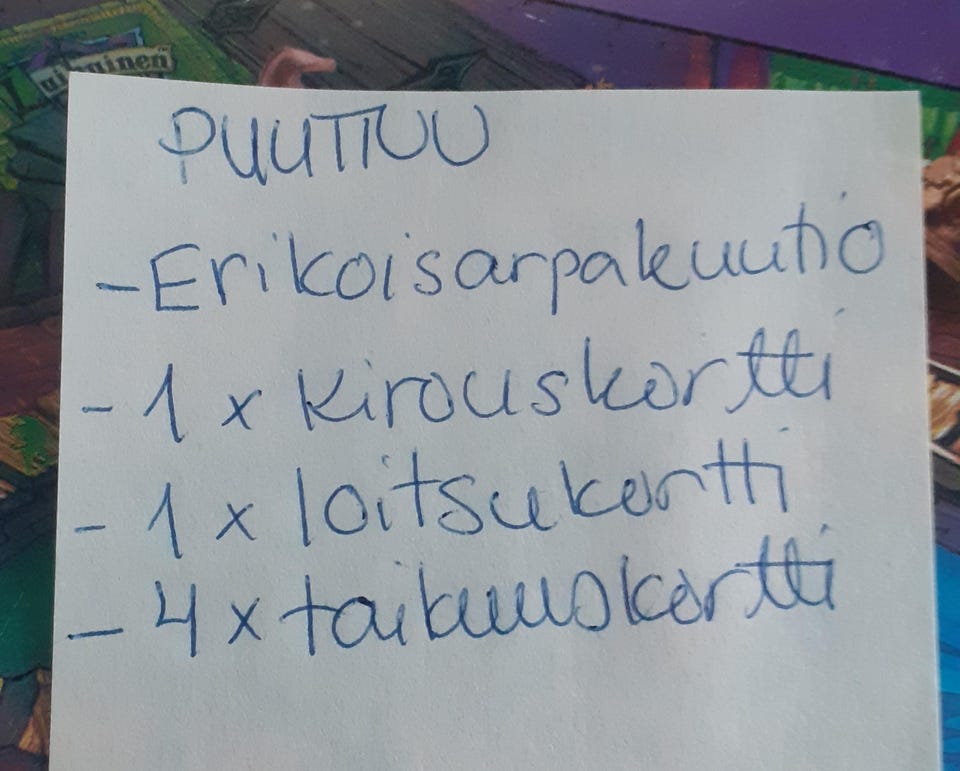 PUUTTUU
- Erikoisarpakuutio
- 1 x kirouskortti
- 1 x loitsukortti
- 4 x taikuuskortti